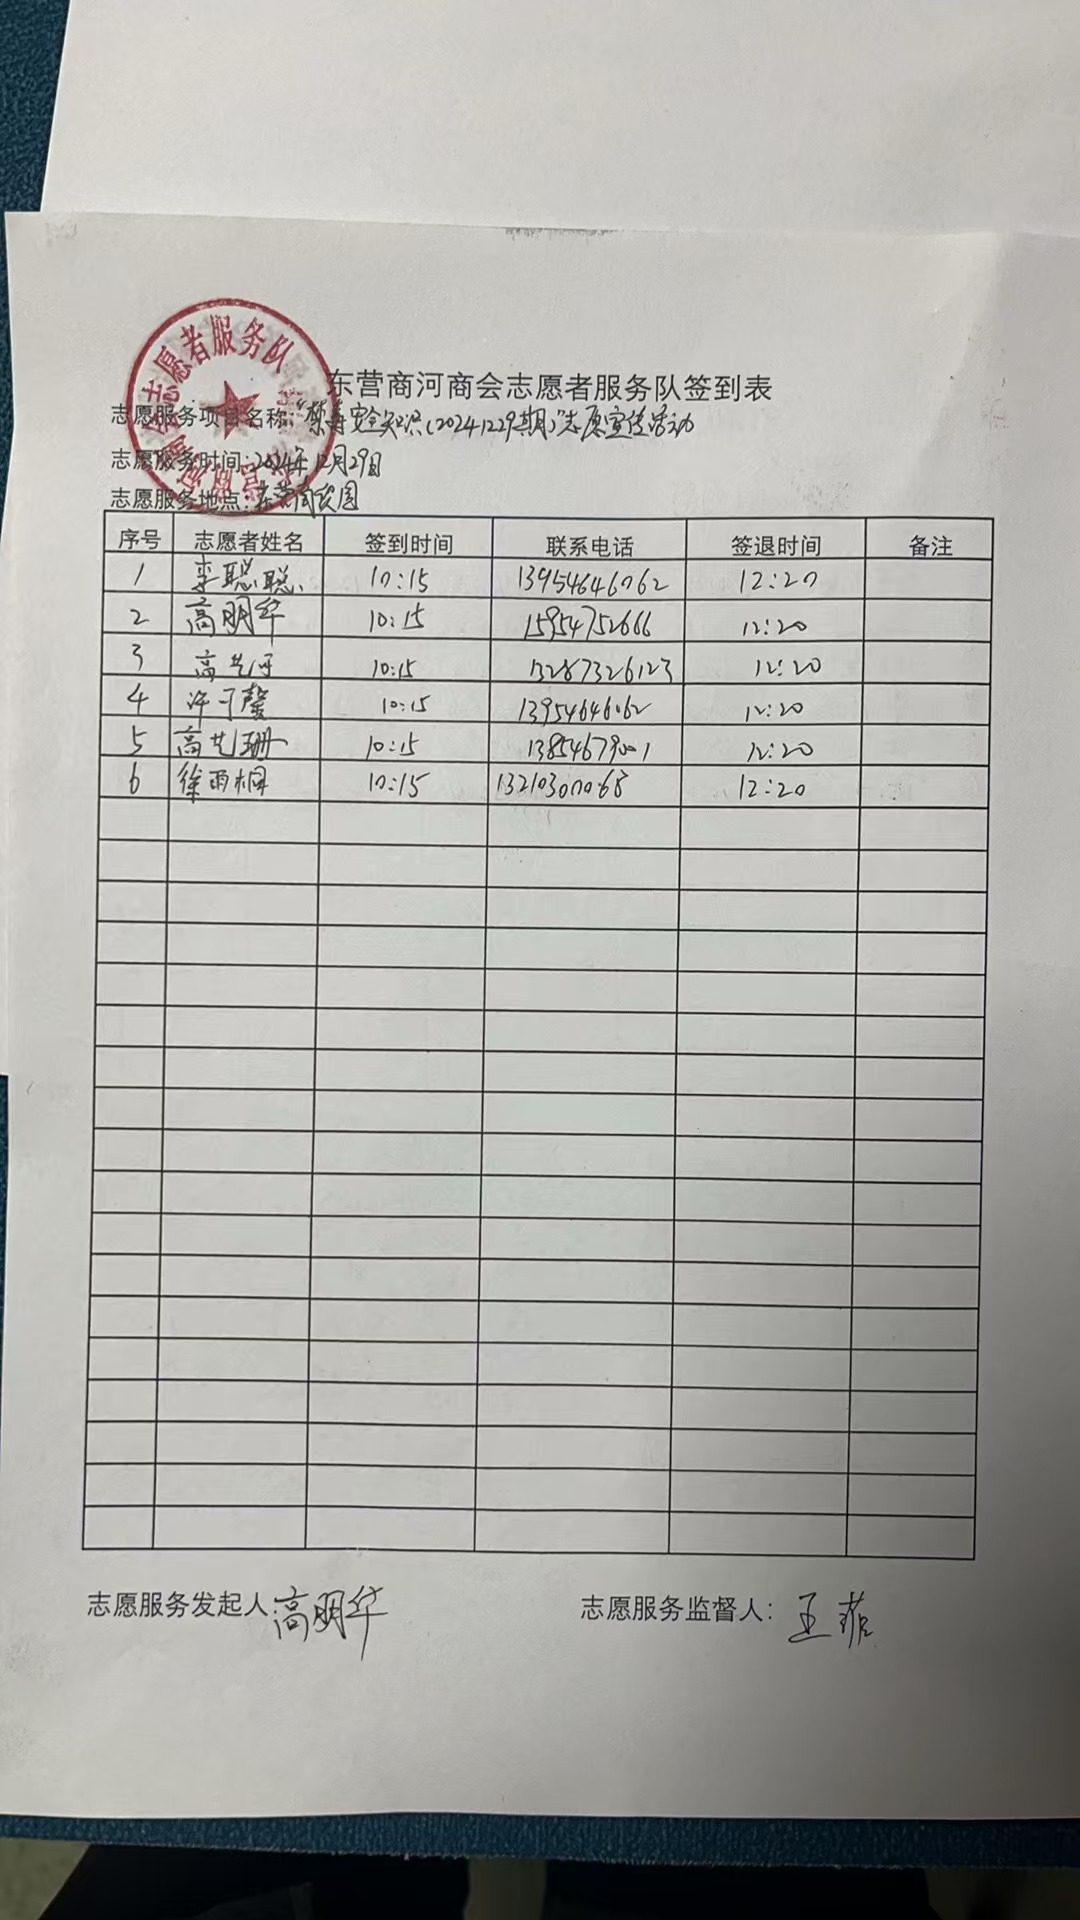 志愿者服务队
东营商河商会志愿者服务队签到表
志愿服务项目名称:"禁毒安全知识(20241229期)"志愿宣传活动
志愿服务时间:2024年12月29日
志愿服务地点:东营
序号 志愿者姓名 签到时间 联系电话 签退时间 备注
1 李聪聪 10:15 13954646062 12:20
2 高明华 10:15 15954752666 12:20
3 高艺 10:15 13287326123 12:20
4 许可馨 10:15 13954646062 12:20
5 高艺珊 10:15 13854679001 12:20
6 徐雨桐 10:15 13210300068 12:20
志愿服务发起人:高明华 志愿服务监督人:王菲